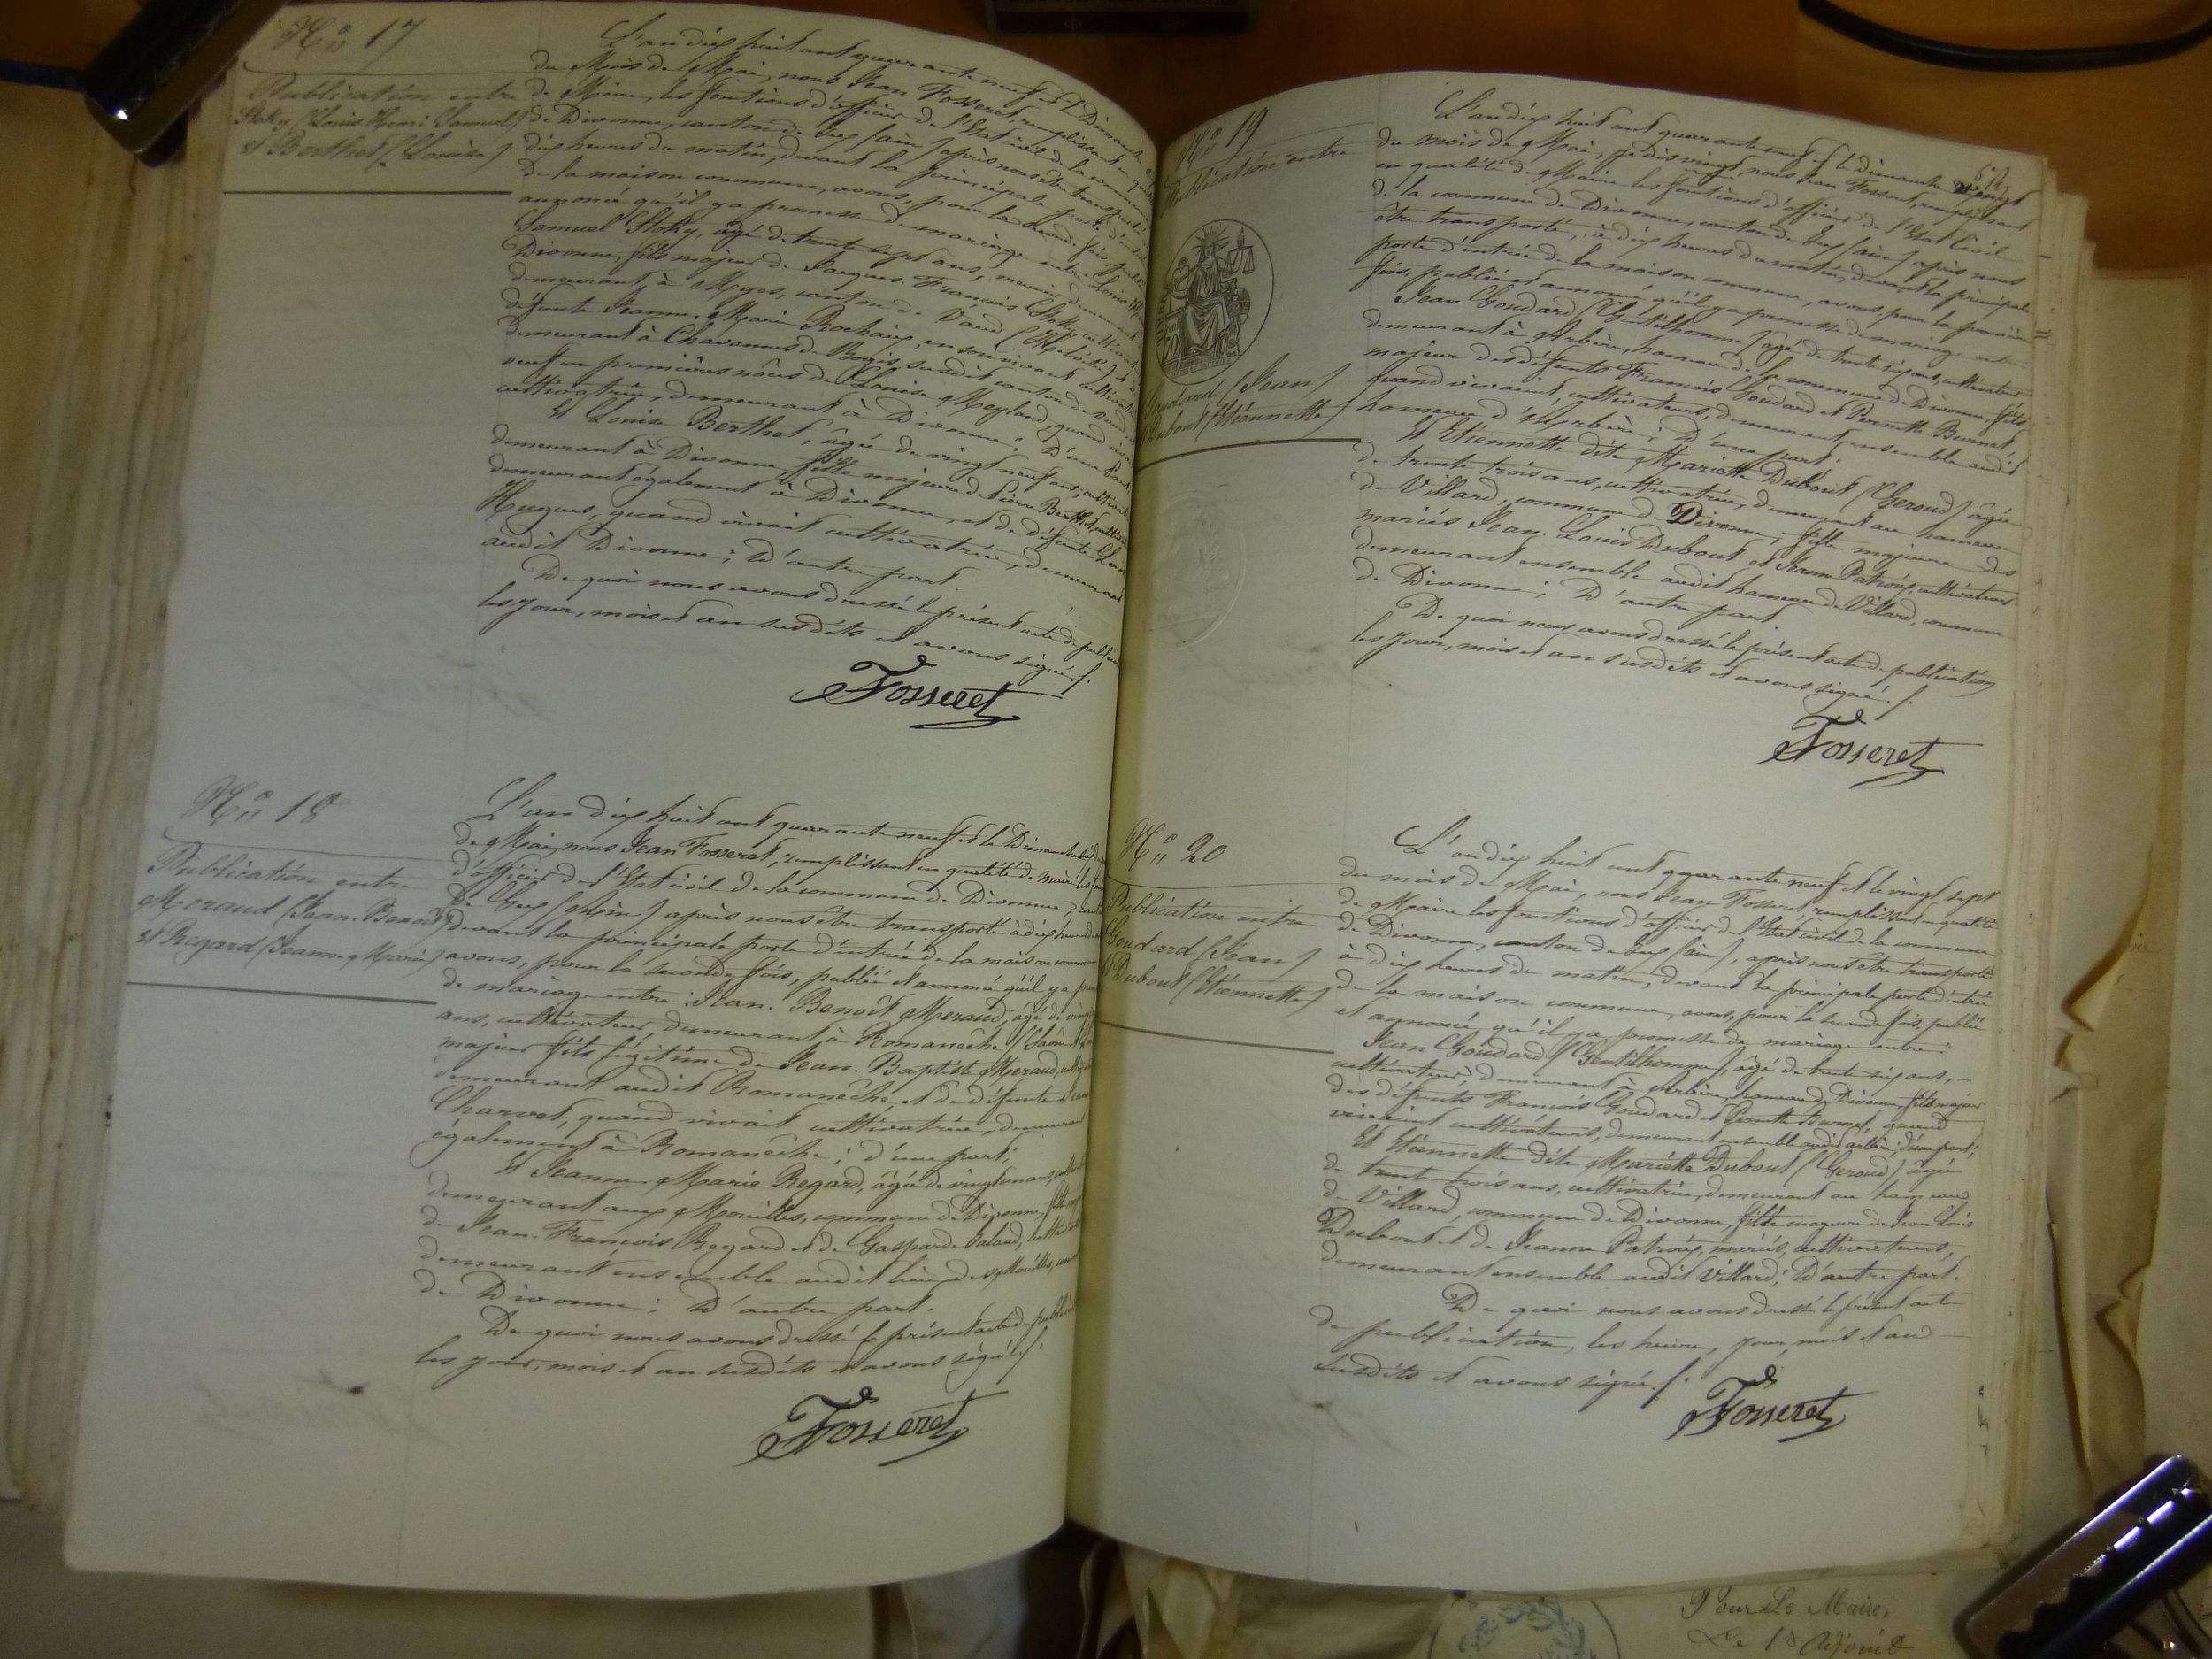 N.º 17
Publication entre
Stoky (Louis Henri Samuel)
et Berthet (Louise)
L'an dix huit cent quarante neuf et le Dimanche
du Mois de Mai, nous Jean Fosseret, remplissant en
de Maire, les fonctions d'officier de l'Etat civil de la commune
de Divonne, canton de Gex (ain) après nous être transporté
dix heures du matin, devant la principale porte
de la maison commune, avons, pour la seconde fois,
annoncé qu'il y a promesse de mariage entre Louis
Samuel Stoky, âgé de trente sept ans, meunier, demeurant
Divonne, fils majeur de Jacques François Stoky, cultivateur
demeurant à Myes, canton de Vaud (Helvétie) et
défunte Jeanne Marie Rochaix, en son vivant cultivatrice
demeurant à Chavannes de Bogis, susdit canton de Vaud
veuf en premières nôces de Louise Meyland, quand vivait
cultivatrice, demeurant à Divonne; D'une Part,
Et Louise Berthet, âgée de vingt neuf ans, cultivatrice
demeurant à Divonne, fille majeure de Pierre Berthet, cultivateur
demeurant également à Divonne, et de défunte
Hugues, quand vivait cultivatrice, demeurant
audit Divonne; D'autre part
De quoi nous avons dressé le présent acte de
les jour, mois et an susdits et avons signé /.
Fosseret
N.º 18
Publication entre
Meraud (Jean-Benoît)
et Regard (Jeanne Marie)
L'an dix huit cent quarante neuf et le Dimanche
de Mai, nous Jean Fosseret, remplissant en qualité de Maire les
d'officier de l'Etat civil de la commune de Divonne,
de Gex (Ain) après nous être transporté à dix heures
devant la principale porte d'entrée de la maison commune
avons, pour la seconde fois, publié et annoncé qu'il y a
de mariage entre: Jean-Benoît Meraud, âgé de
ans, cultivateur, demeurant à Romanèche (Saône et
majeur fils légitime de Jean-Baptiste Meraud,
demeurant audit Romanèche et de défunte
Charvet, quand vivait cultivatrice, demeurant
également à Romanèche; d'une part;
Et Jeanne Marie Regard, âgée de vingt un ans,
demeurant aux Mouilles, commune de Divonne,
de Jean-François Regard et de Gasparde Saland,
demeurant ensemble audit lieu des Mouilles,
de Divonne; D'autre part.
De quoi nous avons dressé le présent acte de
les jour, mois et an susdits et avons signé /.
Fosseret
N.º 19
Publication entre
Goudard (Jean)
Dubout (Etiennette)
L'an dix huit cent quarante neuf et le dimanche vingt
du mois de Mai, je dis vingt, nous Jean Fosseret, remplissant
en qualité de Maire les fonctions d'officier de l'Etat Civil
de la commune de Divonne, canton de Gex (ain) après nous
être transporté, à dix heures du matin, devant la principale
porte d'entrée de la maison commune, avons, pour la première
fois, publié et annoncé qu'il y a promesse de mariage entre
Jean Goudard (Gentilhomme) âgé de trente six ans, cultivateur
demeurant à Arbère, hameau de la commune de Divonne, fils
majeur des défunts François Goudard et Pernette Burnet,
quand vivaient, cultivateurs, demeurant ensemble audit
hameau d'Arbère; D'une part.
Et Etiennette dite Mariette Dubout (Geroud) âgée
de trente trois ans, cultivatrice, demeurant au hameau
de Villard, commune de Divonne, fille majeure des
mariés Jean-Louis Dubout et Jeanne Patroix, cultivateurs
demeurant ensemble audit hameau de Villard, commune
de Divonne; D'autre part
De quoi nous avons dressé le présent acte de publication
les jour, mois et an susdits et avons signé /.
Fosseret
N.º 20
Publication entre
Goudard (Jean)
et Dubout (Etiennette)
L'an dix huit cent quarante neuf et le vingt sept
du mois de Mai, nous Jean Fosseret, remplissant en qualité
de Maire les fonctions d'officier de l'Etat civil de la commune
de Divonne, canton de Gex (ain), après nous être transporté
à dix heures du matin, devant la principale porte d'entrée
de la maison commune, avons, pour la seconde fois, publié
et annoncé qu'il y a promesse de mariage entre:
Jean Goudard (Gentilhomme), âgé de trente six ans,
cultivateur, demeurant à Arbère, hameau de Divonne, fils majeur
des défunts François Goudard et Pernette Burnet, quand
vivaient cultivateurs, demeurant ensemble audit arbère; d'une part;
Et Etiennette dite Mariette Dubout (Geroud) âgée
de trente trois ans, cultivatrice, demeurant au hameau
de Villard, commune de Divonne, fille majeure de Jean Louis
Dubout et de Jeanne Patroix, mariés, cultivateurs,
demeurant ensemble audit Villard; D'autre part.
De quoi nous avons dressé le présent acte
de publication, les heure, jour, mois et an
susdits et avons signé /.
Fosseret
Pour Le Maire,